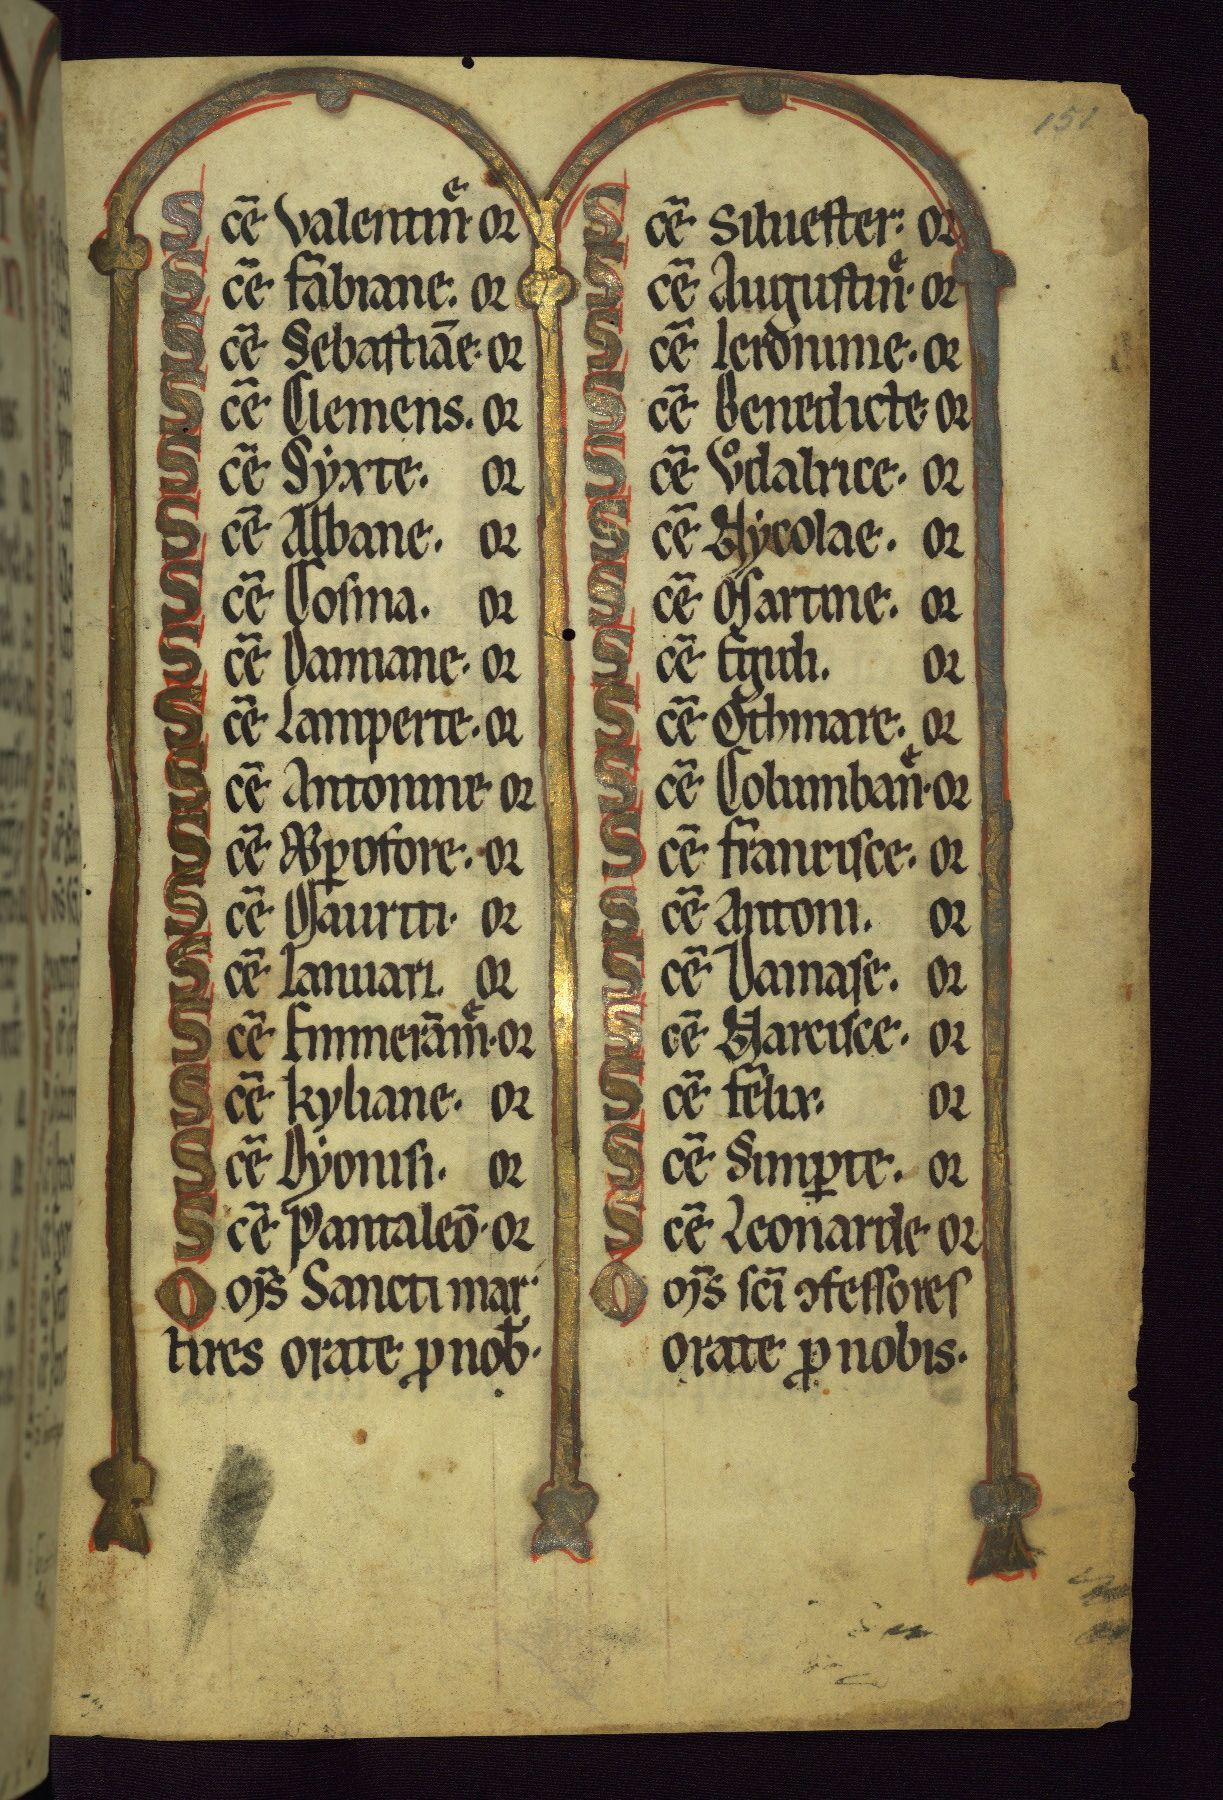 151
Sc̄e Valentin̄e or
Sc̄e fabiane. or
Sc̄e Sebastiāe. or
Sc̄e Clemens. or
Sc̄e Syxte. or
Sc̄e Albane. or
Sc̄e Cosma. or
Sc̄e Damiane. or
Sc̄e Lamperte. or
Sc̄e Antonine or
Sc̄e Mauritii. or
Sc̄e Ianuari. or
Sc̄e Emmeram̄e. or
Sc̄e kyliane. or
Sc̄e Dyonisi. or
Sc̄e Pantaleō. or
Om̄s Sancti mar
tires orate ꝓ nob̄.
Sc̄e Siluester. or
Sc̄e Augustin̄e. or
Sc̄e Ieronime. or
Sc̄e Benedicte or
Sc̄e Vͦdalrice. or
Sc̄e Nycolae. or
Sc̄e Martine. or
Sc̄e Egidi. or
Sc̄e Othmare. or
Sc̄e Columban̄e. or
Sc̄e francisce. or
Sc̄e Antoni. or
Sc̄e Damase. or
Sc̄e Narcisce. or
Sc̄e felix. or
Sc̄e Simꝑte. or
Sc̄e Leonarde or
Om̄s sc̄i ↄfessores
orate ꝓ nobis.